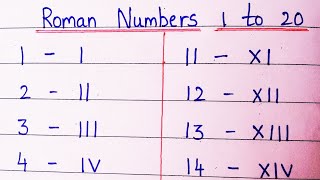 Roman Numbers 1 to 20
1 - I
2 - II
3 - III
4 - IV
11 - XI
12 - XII
13 - XIII
14 - XIV